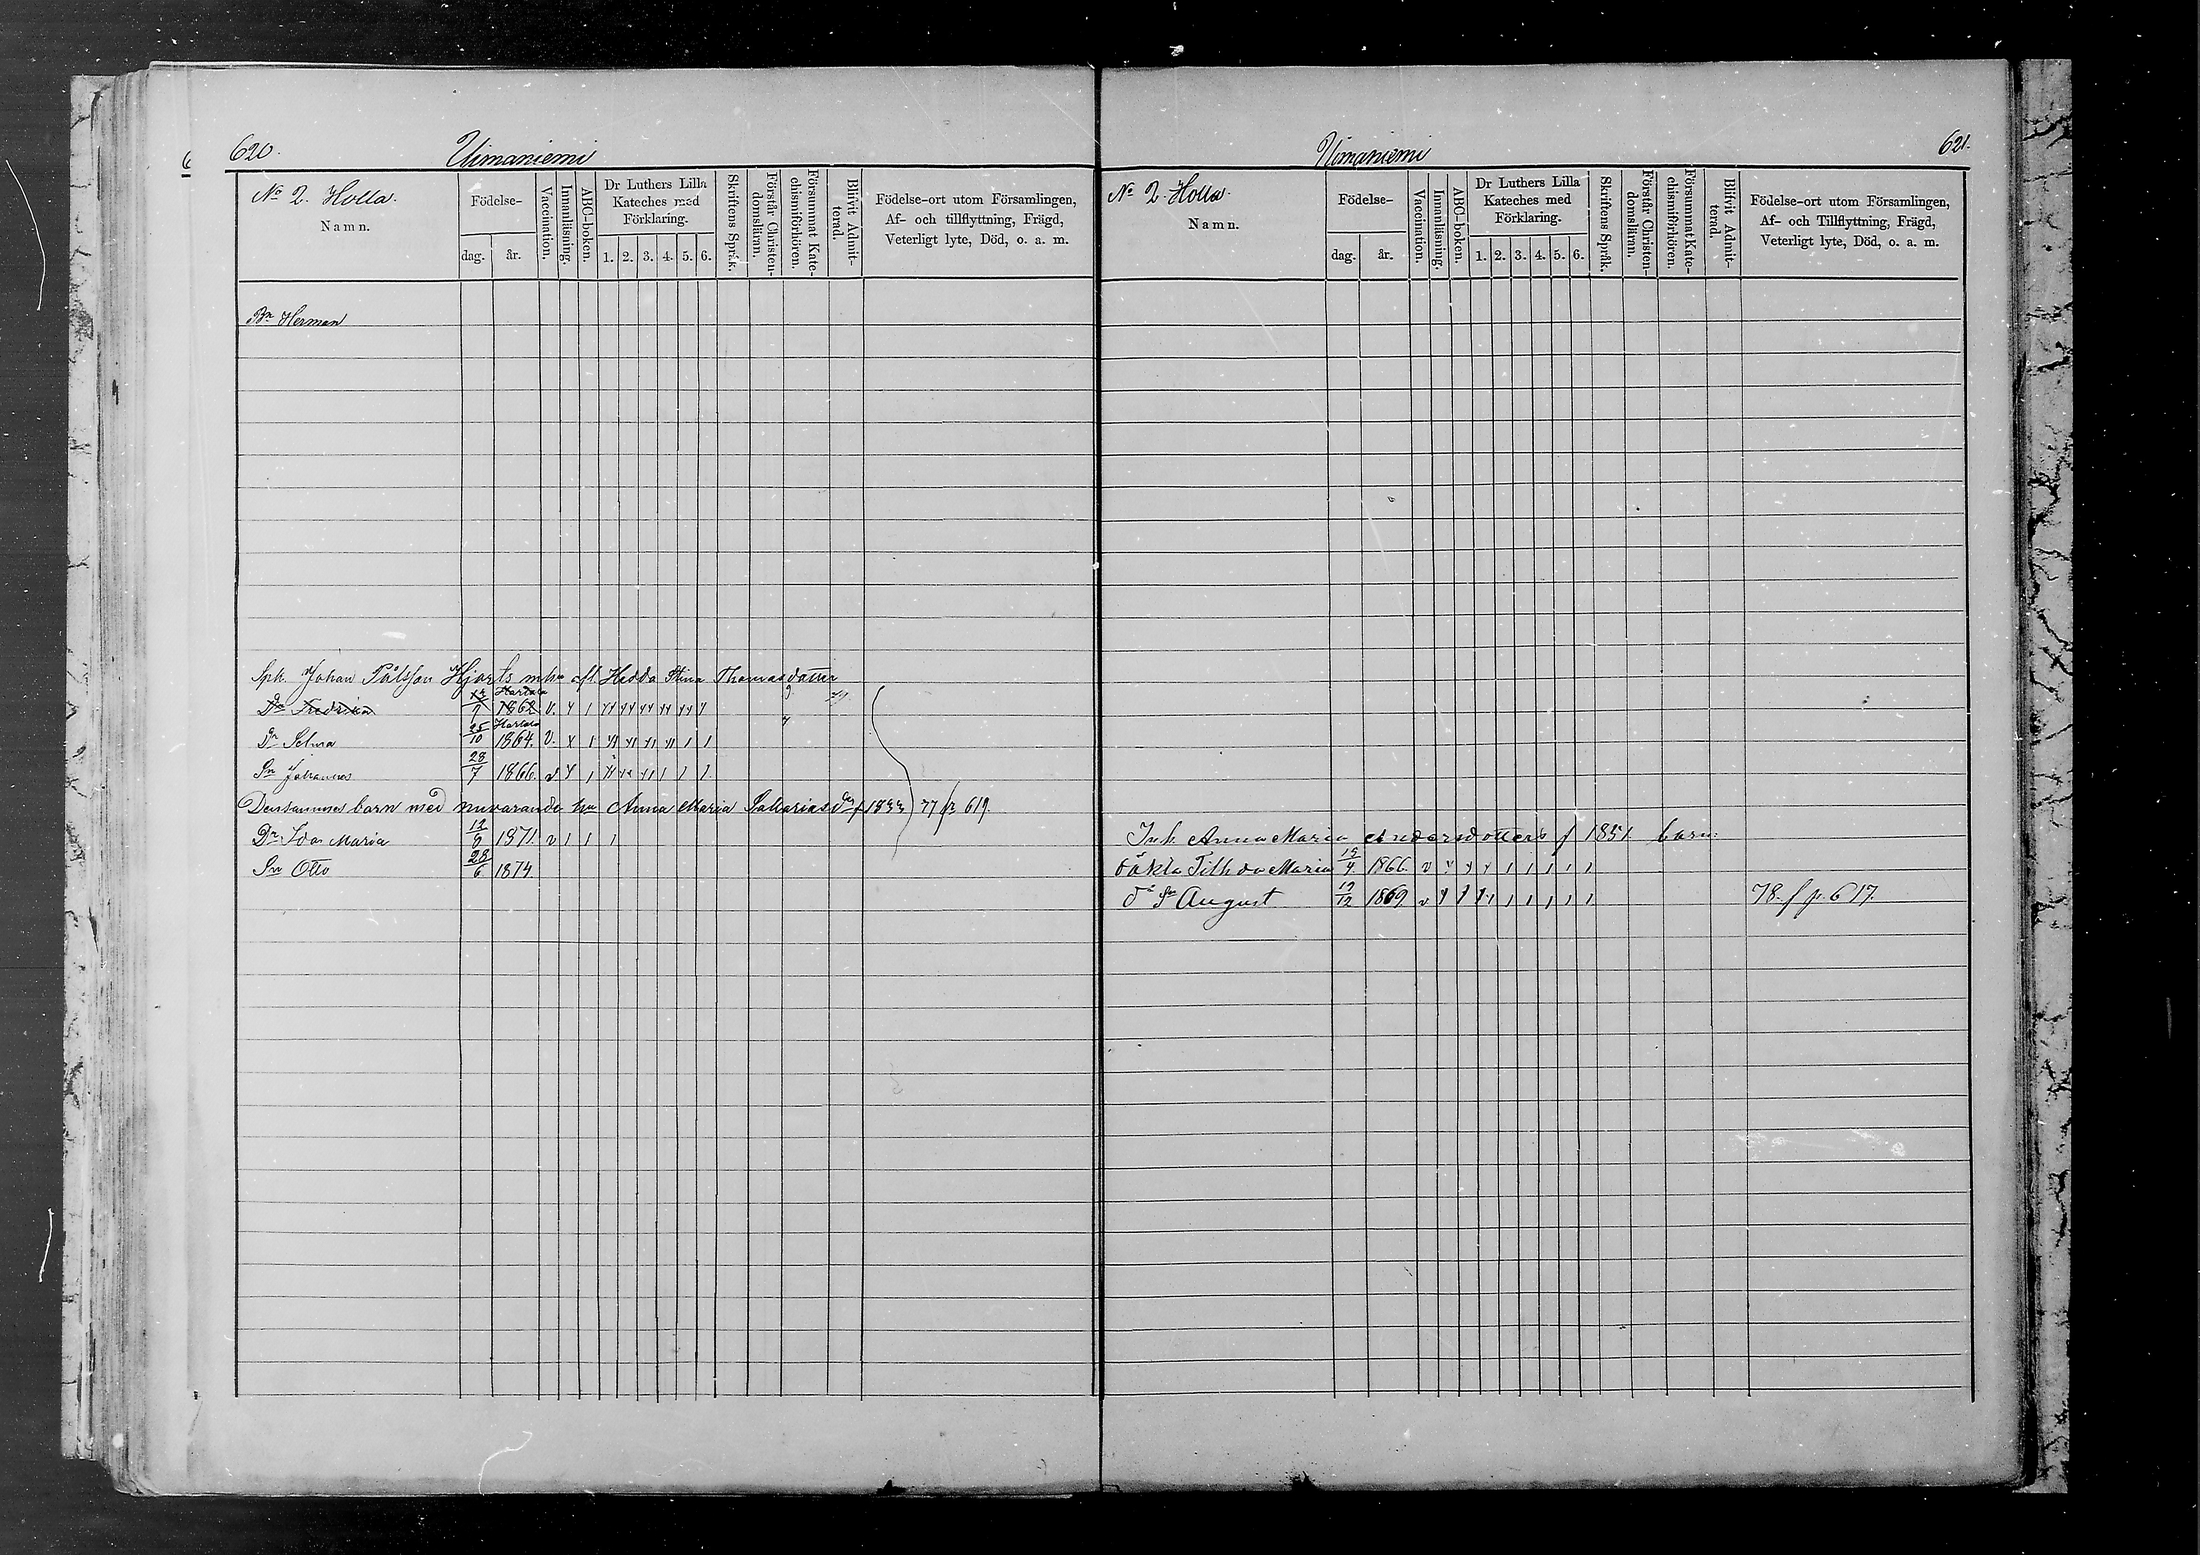 620.
Uimaniemi
No 2. Holla.
Namn.
Födelse-
dag.
år.
Vaccination.
Innanläsning.
ABC-boken.
Dr Luthers Lilla
Kateches med
Förklaring.
1. 2. 3. 4. 5. 6.
Skriftens Språk.
Förstår Christen-
domsläran.
Försummat Kate-
chismiförhören.
Blifvit Admit-
terad.
Födelse-ort utom Församlingen,
Af- och tillflyttning, Frägd,
Veterligt lyte, Död, o. a. m.
Bn Herman
Johan Pålsson Hjorts m hu afl. Hedda Stina Thomasdotter
Hartola
Dr Fredrika 1862 v.
25 Hartola
Dr Selma 10 1864. v.
28
Sn Johannes 7 1866. v
Densammes barn med nuvarande hu Anna Maria f 1833 77 fr 619.
12
Dr Ida Maria 8 1871. v
28
Sn Otto 6 1874
Uimaniemi
621.
No 2. Holla.
Namn.
Födelse-
dag.
år.
Vaccination.
Innanläsning.
ABC-boken.
Dr Luthers Lilla
Kateches med
Förklaring.
1. 2. 3. 4. 5. 6.
Skriftens Språk.
Förstår Christen-
domsläran.
Försummat Kate-
chismiförhören.
Blifvit Admit-
terad.
Födelse-ort utom Församlingen,
Af- och Tillflyttning, Frägd,
Veterligt lyte, Död, o. a. m.
Inh. Anna Maria Andersdotters f 1851 barn:
oäkta Tilhda Maria 4 1866. v
12
Sn August 12 1869. v 78. f p. 617.